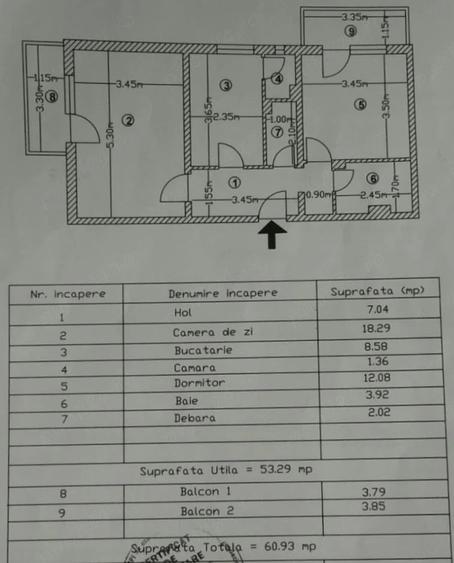 3.35m
1.15m
⑨
1.15m
3.30m
⑧
3.45m
5.30m
②
③
3.65m
2.35m
④
1.00m
⑦
2.10m
3.45m
3.50m
⑤
①
1.55m
3.45m
0.90m
⑥
2.45m
1.70m
Nr. incapere Denumire incapere Suprafata (mp)
1 Hol 7.04
2 Camera de zi 18.29
3 Bucatarie 8.58
4 Camara 1.36
5 Dormitor 12.08
6 Baie 3.92
7 Debara 2.02
Suprafata Utila = 53.29 mp
8 Balcon 1 3.79
9 Balcon 2 3.85
Suprafata Totala = 60.93 mp